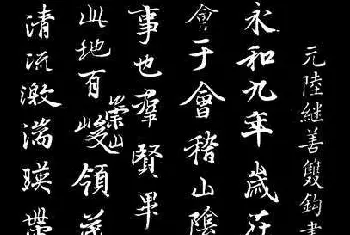 元陸继善雙鈎書
永和九年歲在
會于會稽山陰
事也羣賢畢
此地有崇山峻領茂
清流激湍暎帶